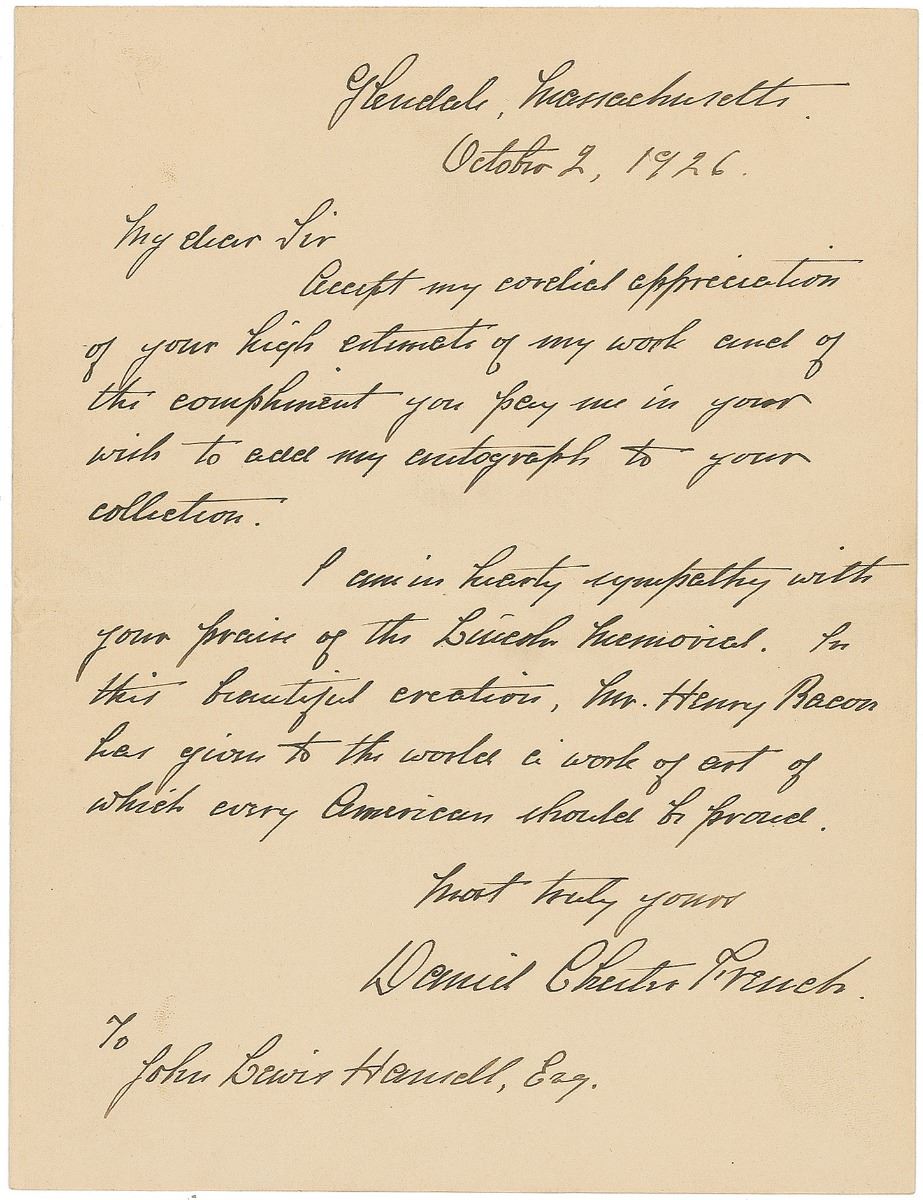 Glendale, Massachusetts.
October 2, 1926.
My dear Sir
Accept my cordial appreciation
of your high estimate of my work and of
the compliment you pay me in your
wish to add my autograph to your
collection.
I am in hearty sympathy with
your praise of the Lincoln Memorial. In
this beautiful creation, Mr. Henry Bacon
has given to the world a work of art of
which every American should be proud.
Most truly yours
Daniel Chester French.
To
John Lewis Hansell, Esq.